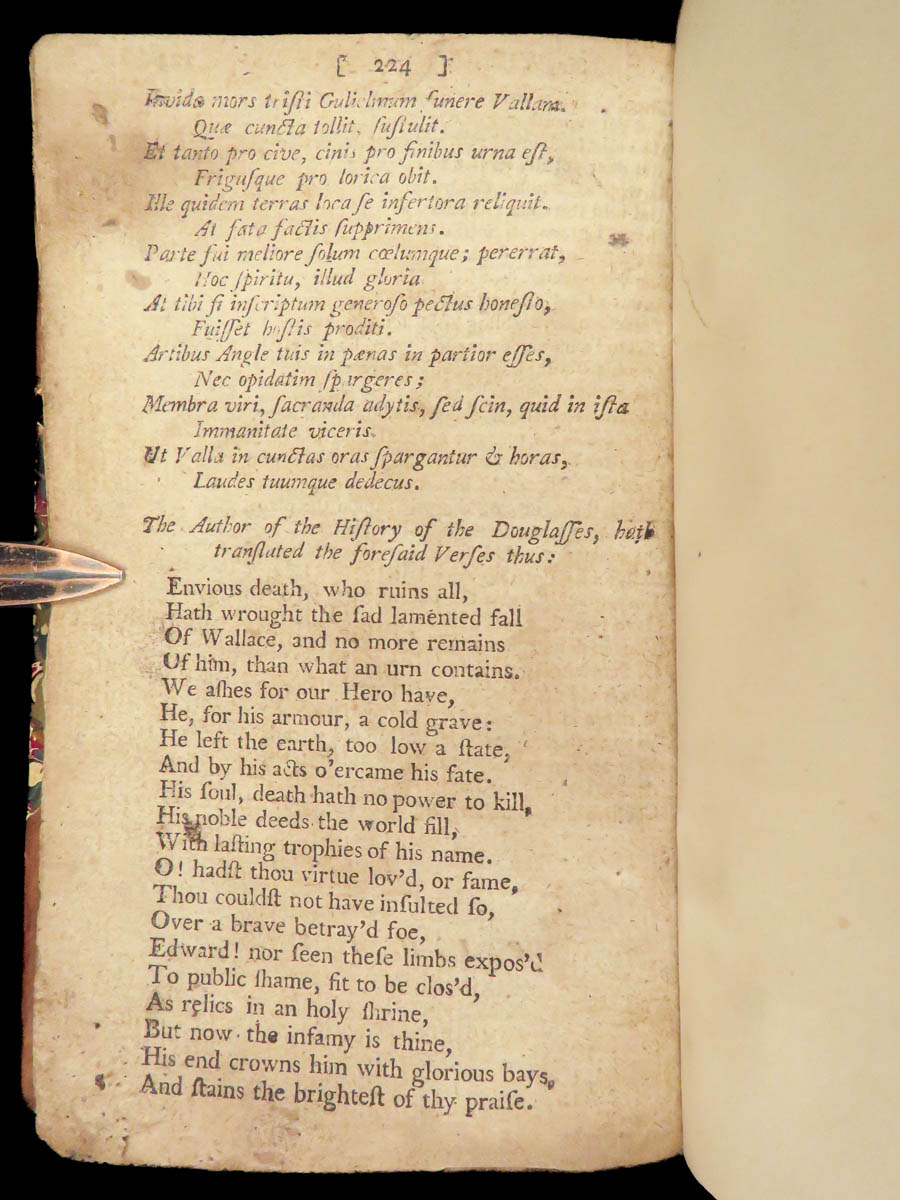 [ 224 ]
Invida mors tristi Gulielmum funere Vallam.
Quæ cuncta tollit, sustulit.
Et tanto pro cive, cinis pro finibus urna est,
Frigusque pro lorica obit.
Ille quidem terras loca se infertora reliquit.
At fata factis supprimens.
Parte sui meliore solum cœlumque; pererrat,
Hoc spiritu, illud gloria
At tibi si inscriptum generoso pectus honesto,
Fuisset hostis proditi.
Artibus Angle tuis in pænas in partior esses,
Nec opidatim spargeres;
Membra viri, sacranda adytis, sed scin, quid in ista
Immanitate viceris.
Ut Valla in cunctas oras spargantur & horas,
Laudes tuumque dedecus.
The Author of the History of the Douglasses, hath
translated the foresaid Verses thus:
Envious death, who ruins all,
Hath wrought the sad lamented fall
Of Wallace, and no more remains
Of him, than what an urn contains.
We ashes for our Hero have,
He, for his armour, a cold grave:
He left the earth, too low a state,
And by his acts o'ercame his fate.
His soul, death hath no power to kill,
His noble deeds the world fill,
With lasting trophies of his name.
O! hadst thou virtue lov'd, or fame,
Thou couldst not have insulted so,
Over a brave betray'd foe,
Edward! nor seen these limbs expos'd
To public shame, fit to be clos'd,
As relics in an holy shrine,
But now the infamy is thine,
His end crowns him with glorious bays,
And stains the brightest of thy praise.